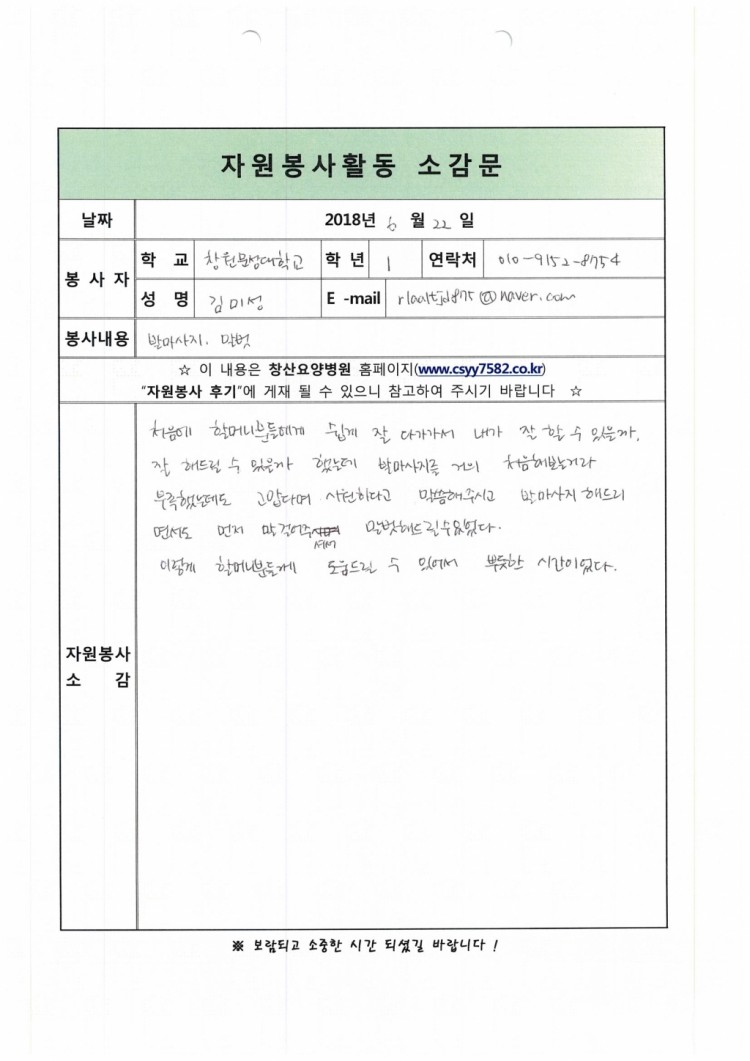 자원봉사활동 소감문
날짜 2018년 6 월 22 일
봉 사 자
학 교 창원문성대학교 학 년 1 연락처 010-9152-8754
성 명 김미성 E -mail rlaaltjd875@naver.com
봉사내용 발마사지. 말벗
☆ 이 내용은 창산요양병원 홈페이지(www.csyy7582.co.kr)
"자원봉사 후기"에 게재 될 수 있으니 참고하여 주시기 바랍니다 ☆
자원봉사
소 감
처음에 할머니분들에게 쉽게 잘 다가가서 내가 잘 할 수 있을까,
잘 해드릴 수 있을까 했는데 발마사지를 거의 처음해보는거라
부족했는데도 고맙다며 시원하다고 말씀해주시고 발마사지 해드리
면서도 먼저 말 걸어주셔서 말벗해드릴수있었다.
이렇게 할머니분들께 도움드릴 수 있어서 뿌듯한 시간이었다.
※ 보람되고 소중한 시간 되셨길 바랍니다 !